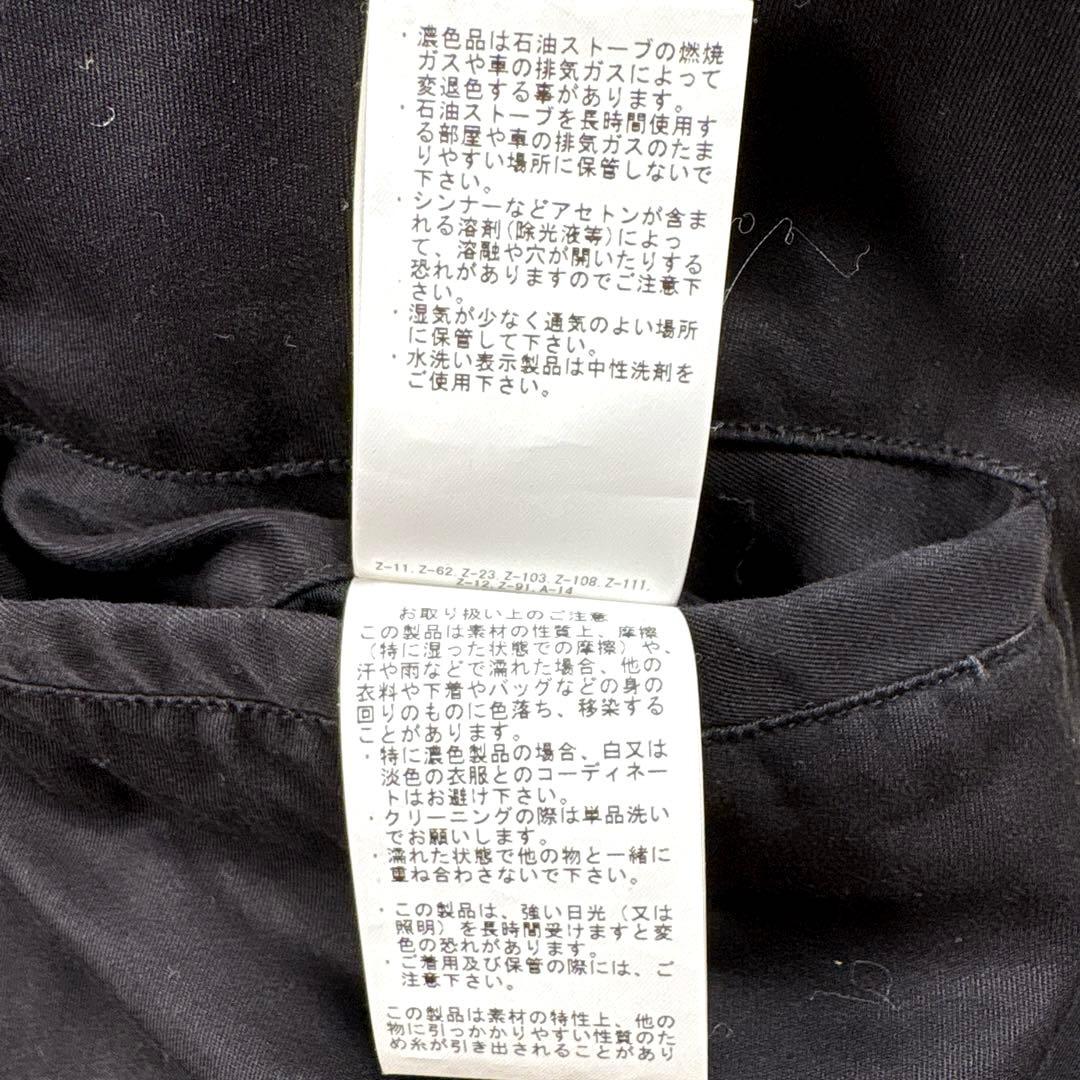 ・濃色品は石油ストーブの燃焼
ガスや車の排気ガスによって
変退色する事があります。
・石油ストーブを長時間使用す
る部屋や車の排気ガスのたま
りやすい場所に保管しないで
下さい。
・シンナーなどアセトンが含ま
れる溶剤(除光液等)によっ
て、溶融や穴が開いたりする
恐れがありますのでご注意下
さい。
・湿気が少なく通気のよい場所
に保管して下さい。
・水洗い表示製品は中性洗剤を
ご使用下さい。
Z-11, Z-62, Z-23, Z-103, Z-108, Z-111,
Z-12, Z-91, A-14
お取り扱い上のご注意
この製品は素材の性質上、摩擦
(特に湿った状態での摩擦)や、
汗や雨などで濡れた場合、他の
衣料や下着やバッグなどの身の
回りのものに色落ち、移染する
ことがあります。
・特に濃色製品の場合、白又は
淡色の衣服とのコーディネー
トはお避け下さい。
・クリーニングの際は単品洗い
でお願いします。
・濡れた状態で他の物と一緒に
重ね合わさないで下さい。
・この製品は、強い日光(又は
照明)を長時間受けますと変
色の恐れがあります。
・ご着用及び保管の際には、ご
注意下さい。
この製品は素材の特性上、他の
物に引っかかりやすい性質のた
め糸が引き出されることがあり